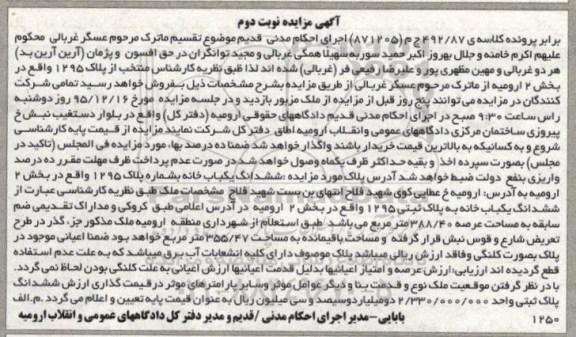 آگهی مزایده نوبت دوم
برابر پرونده کلاسه ی ۴۹۲/۸۷ ج م (۸۷۱۲۰۵) اجرای احکام مدنی قدیم موضوع تقسیم ماترک مرحوم عسگر غربالی محکوم
علیهم اکرم خامنه و جلال بهروز اکبر حمید سور به سهیلا همگی غربالی و مجید توانگران در حق افسون و پژمان (آرین آرین بد)
هر دو غربالی و مهین مظهری پور و علیرضا رفیعی فر (غربالی) شده اند لذا طبق نظریه کارشناس منتخب از پلاک ۱۲۹۵ واقع در
بخش ۲ ارومیه از ماترک مرحوم عسگر غربالی از طریق مزایده بشرح مشخصات ذیل بفروش خواهد رسید تمامی شرکت
کنندگان در مزایده می توانند پنج روز قبل از مزایده از ملک مزبور بازدید و در جلسه مزایده مورخ ۹۵/۱۲/۱۶ روز دوشنبه
راس ساعت ۹:۳۰ صبح در اجرای احکام مدنی قدیم دادگاههای حقوقی ارومیه (دفتر کل) واقع در بلوار دستغیب نبش خ
پیروزی ساختمان مرکزی دادگاههای عمومی وانقلاب ارومیه اطاق دفتر کل شرکت نمایند مزایده از قیمت پایه کارشناسی
شروع و به کسانیکه به بالاترین قیمت خریدار باشند واگذار خواهد شد ضمنا ده درصد بها، مورد مزایده فی المجلس (تاکید در
مجلس) بصورت سپرده اخذ و بقیه حداکثر ظرف یکماه وصول خواهد شد در صورت عدم پرداخت ظرف مهلت مقرر ده درصد
واریزی بنفع دولت ضبط خواهد شد آدرس پلاک مورد مزایده :ششدانگ یکباب خانه بشماره پلاک ۱۲۹۵ واقع در بخش ۲
ارومیه به آدرس: ارومیه خ عطایی کوی شهید فلاح انتهای بن بست شهید فلاح مشخصات ملک طبق نظریه کارشناسی عبارت از
ششدانگ یکباب خانه به پلاک ثبتی ۱۲۹۵ واقع در بخش ۲ ارومیه در آدرس اعلامی طبق کروکی و مدارک تقدیمی ضم
سابقه به مساحت عرصه ۳۸۸/۴۰ متر مربع می باشد طبق استعلام از شهرداری منطقه ارومیه ملک مذکور جزء گذر در طرح
تعریض شارع و قوس نبش قرار گرفته و مساحت باقیمانده به مساحت ۳۵۵/۴۷ متر مربع خواهد بود ضمنا اعیانی موجود در
پلاک بصورت کلنگی و فاقد ارزش ریالی میباشد پلاک موصوف دارای کلیه انشعابات آب برق میباشد که به علت عدم استفاده
قطع گردیده اند ارزیابی: ارزش عرصه و امتیاز اعیانیها بدلیل قدمت اعیانیها ارزش اعیانی به علت کلنگی بودن لحاظ نمی گردد.
با در نظر گرفتن موقعیت ملک نوع و قدمت بنا و دیگر عوامل موثر و سایر پارامترهای موثر در قیمت گذاری ارزش ششدانگ
پلاک ثبتی واحد ۲/۳۳۰/۰۰۰/۰۰۰ دومیلیارد و سیصد و سی میلیون ریال به عنوان قیمت پایه تعیین و اعلام می گردد .م.الف
۱۲۵۰ بابایی-مدیر اجرای احکام مدنی /قدیم و مدیر دفتر کل دادگاههای عمومی و انقلاب ارومیه